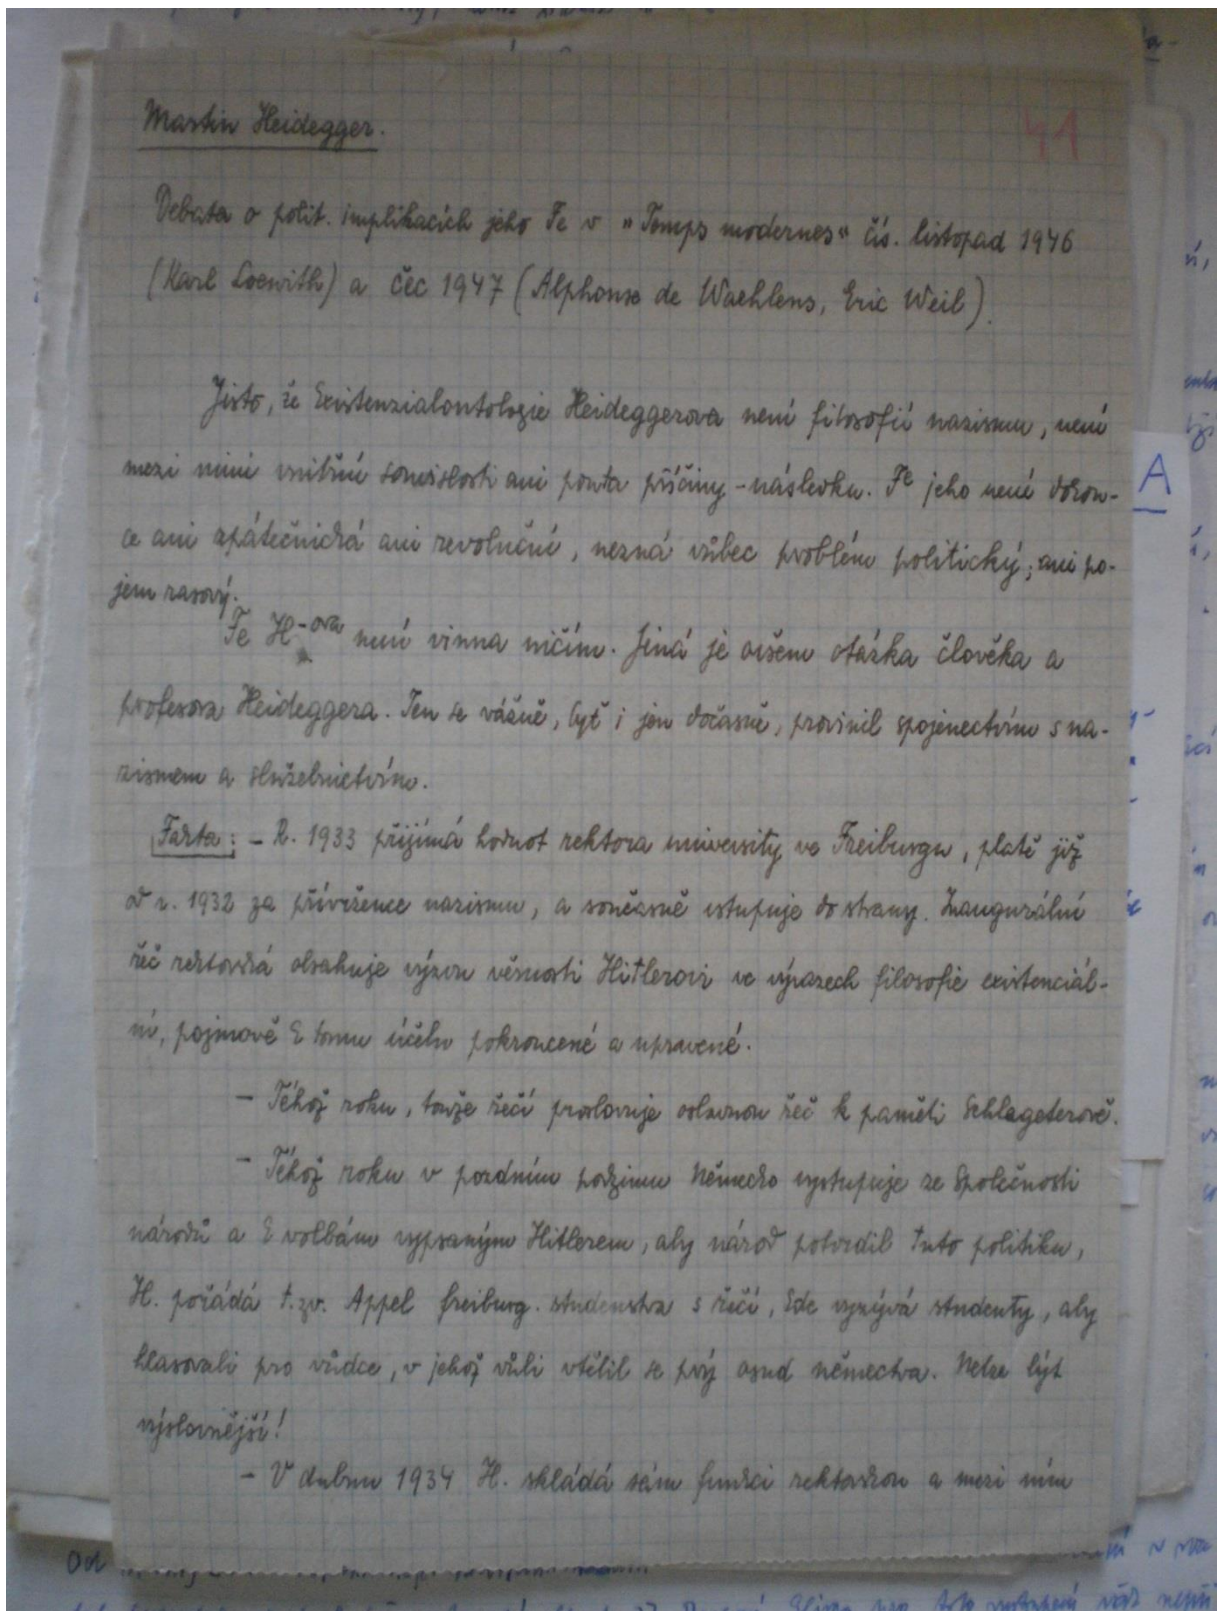 Martin Heidegger.
41
Debata o polit. implikacích jeho Fe v "Temps modernes" čís. listopad 1946
(Karl Loewith) a čec 1947 (Alphonse de Waehlens, Eric Weil).
Jisto, že Existenzialontologie Heideggerova není filosofií nazismu, není
mezi nimi vnitřní souvislosti ani pouta příčiny-následku. Fe jeho není dokon-
ce ani zpátečnická ani revoluční, nezná vůbec problém politický; ani po-
jem rasový.
Fe H-ova není vinna ničím. Jiná je ovšem otázka člověka a
profesora Heideggera. Ten se vážně, byť i jen dočasně, provinil spojenectvím s na-
zismem a služebnictvím.
Fakta: - R. 1933 přijímá hodnot rektora university ve Freiburgu, platě již
od r. 1932 za přívržence nazismu, a současně vstupuje do strany. Inaugurální
řeč rektorská obsahuje výzvu věrnosti Hitlerovi ve výrazech filosofie existenciál-
ní, pojmově k tomu účelu pokroucené a upravené.
- Téhož roku, touže řečí proslovuje oslavnou řeč k paměti Schlageterově.
- Téhož roku v pozdním podzimu Německo vystupuje ze Společnosti
národů a k volbám vypsaným Hitlerem, aby národ potvrdil tuto politiku,
H. pořádá t.zv. Appel freiburg. studenstva s řečí, kde vyzývá studenty, aby
hlasovali pro vůdce, v jehož vůli vtělil se prý osud němectva. Nelze být
výslovnější!
- V dubnu 1934 H. skládá sám funkci rektorskou a mezi ním
A